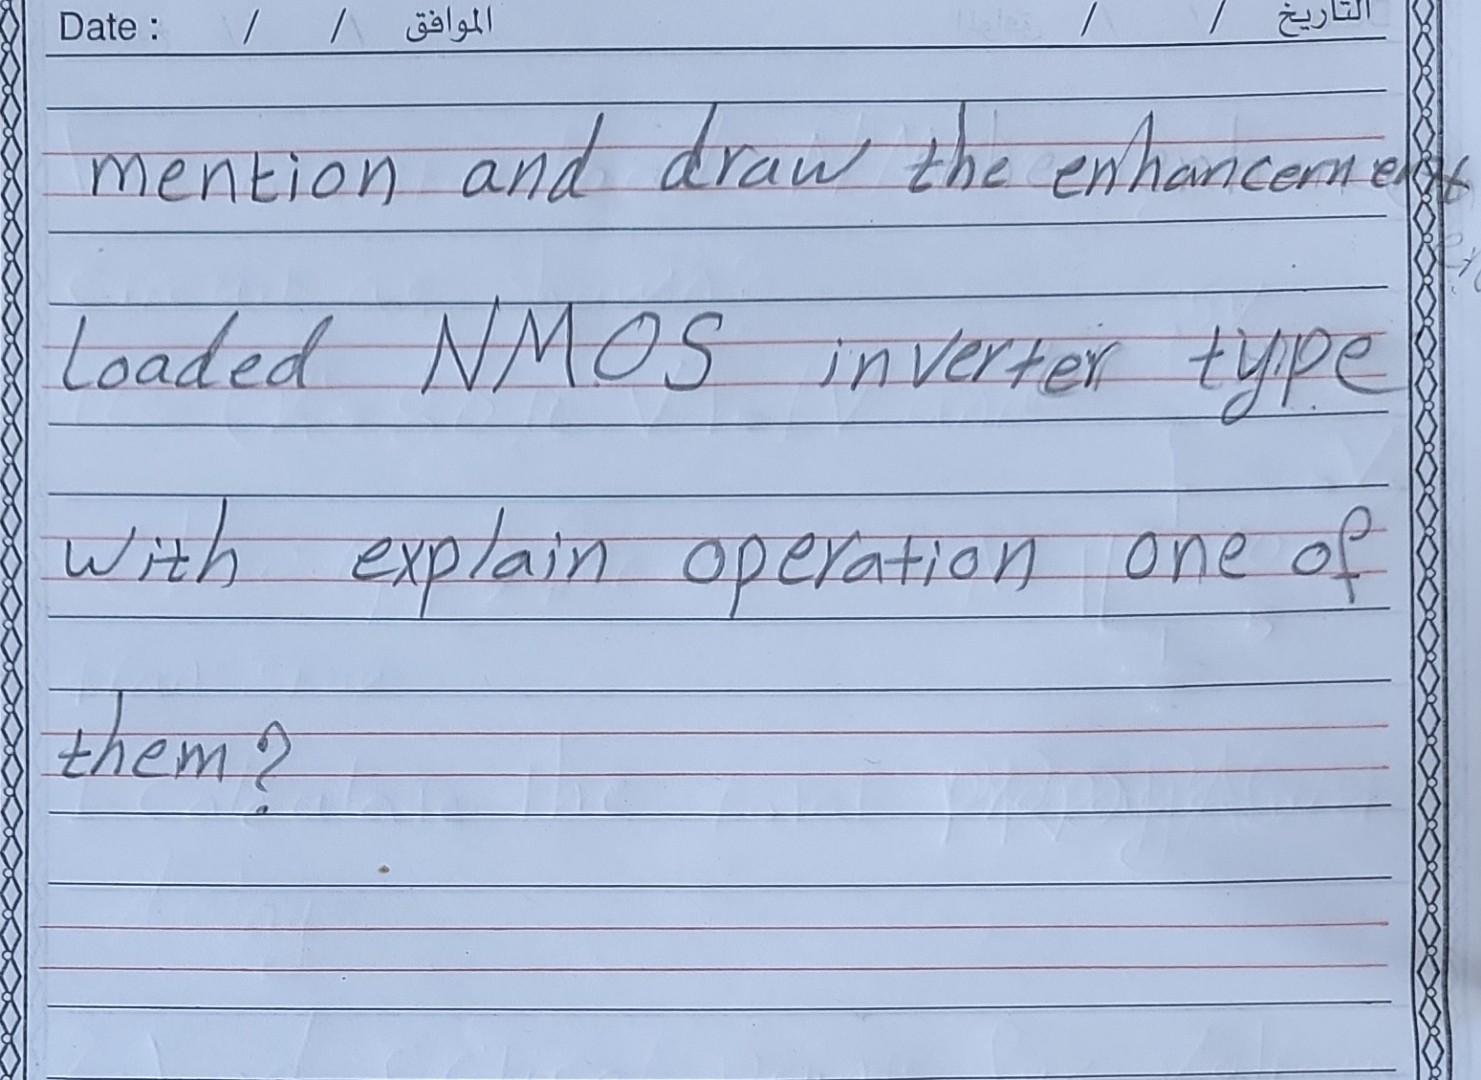 Date : / / الموافق / / التاريخ
mention and draw the enhancement
Loaded NMOS inverter type
with explain operation one of
them?